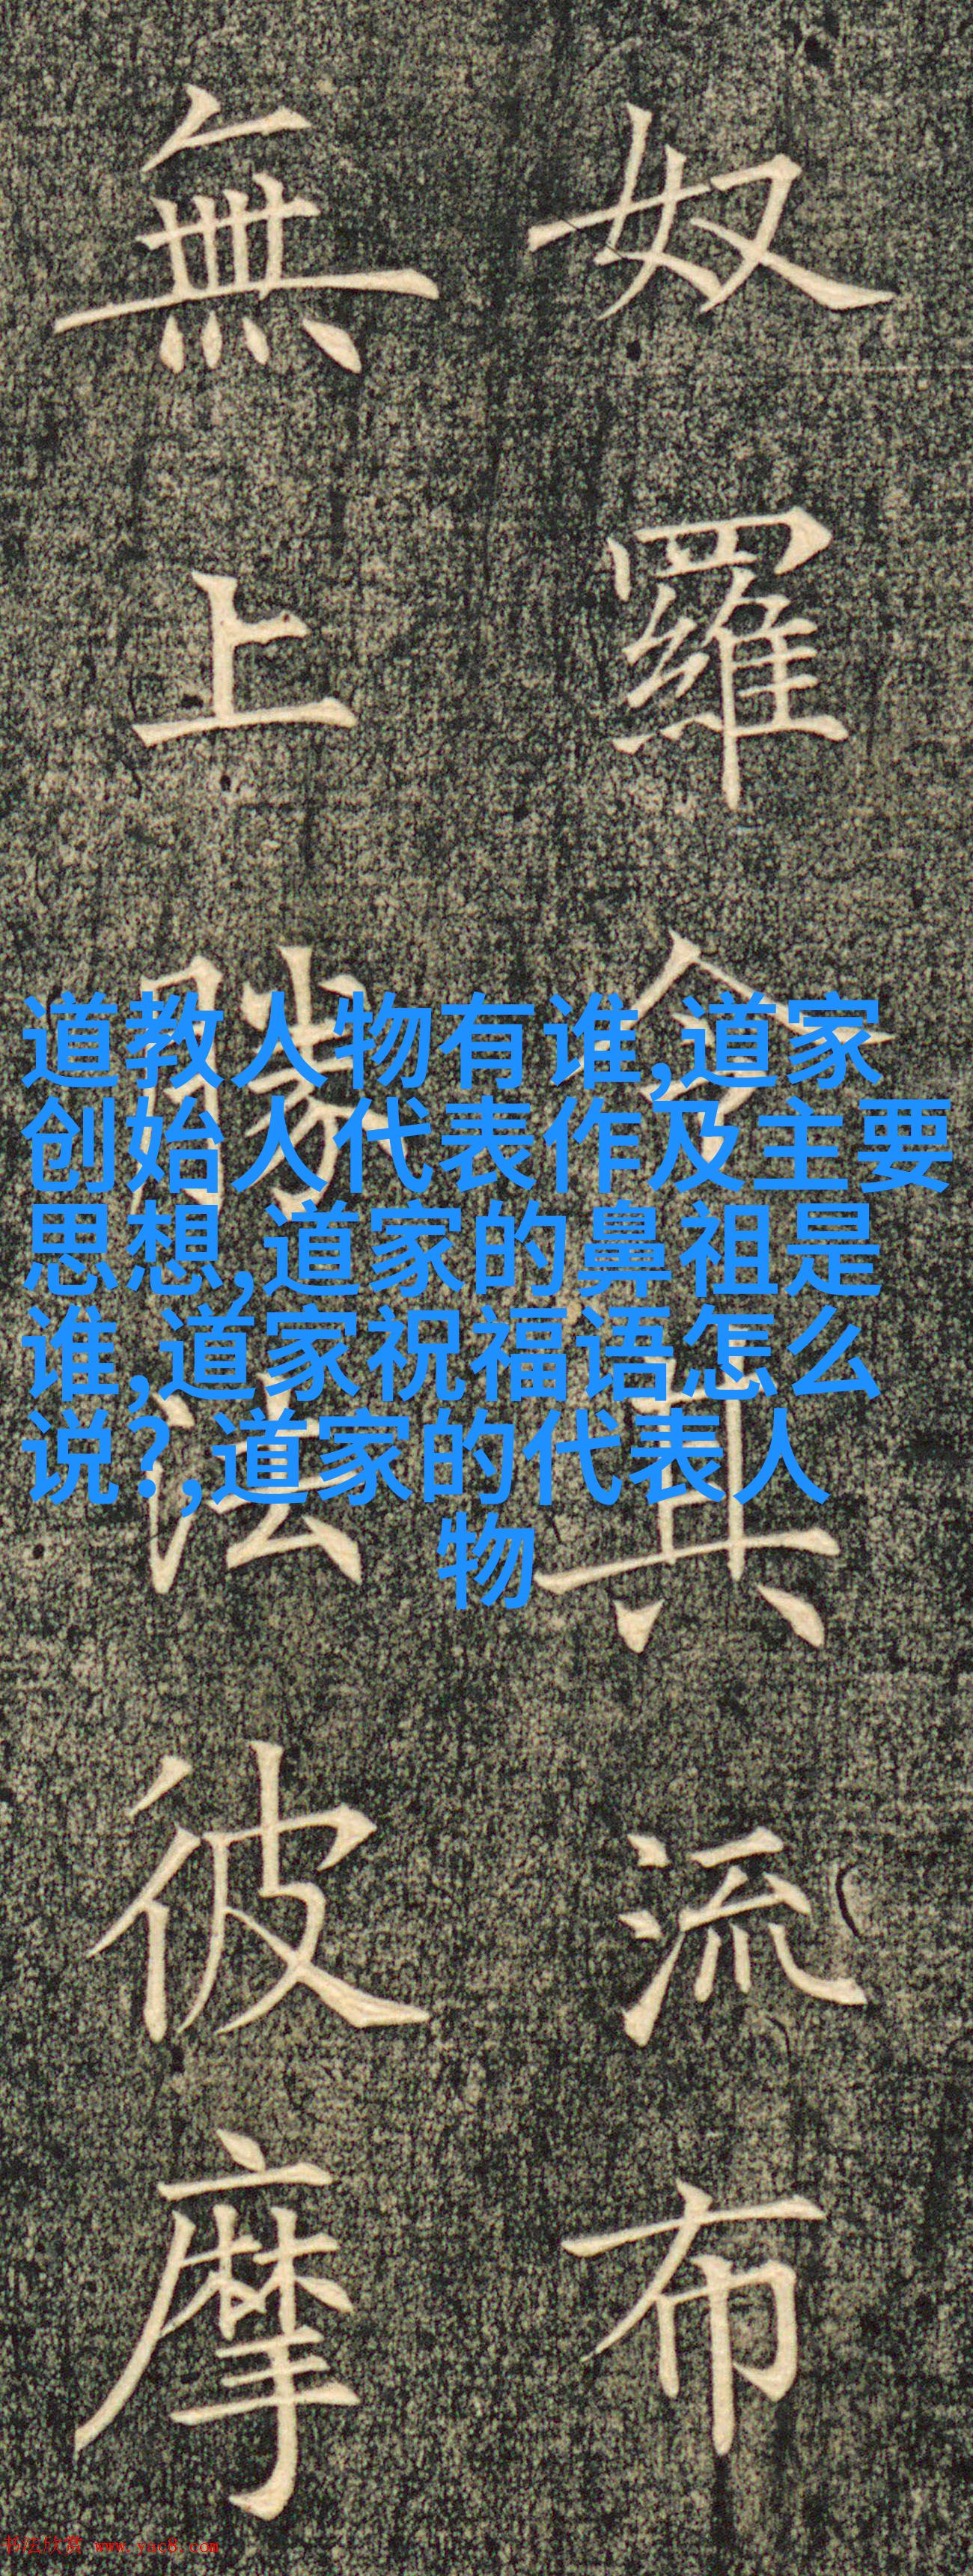 奴羅令其流布
無上勝法彼摩
道教人物有谁,道家
创始人代表作及主要
思想,道家的鼻祖是
谁,道家祝福语怎么
说?,道家的代表人
物
书法欣赏 www.yac8.com